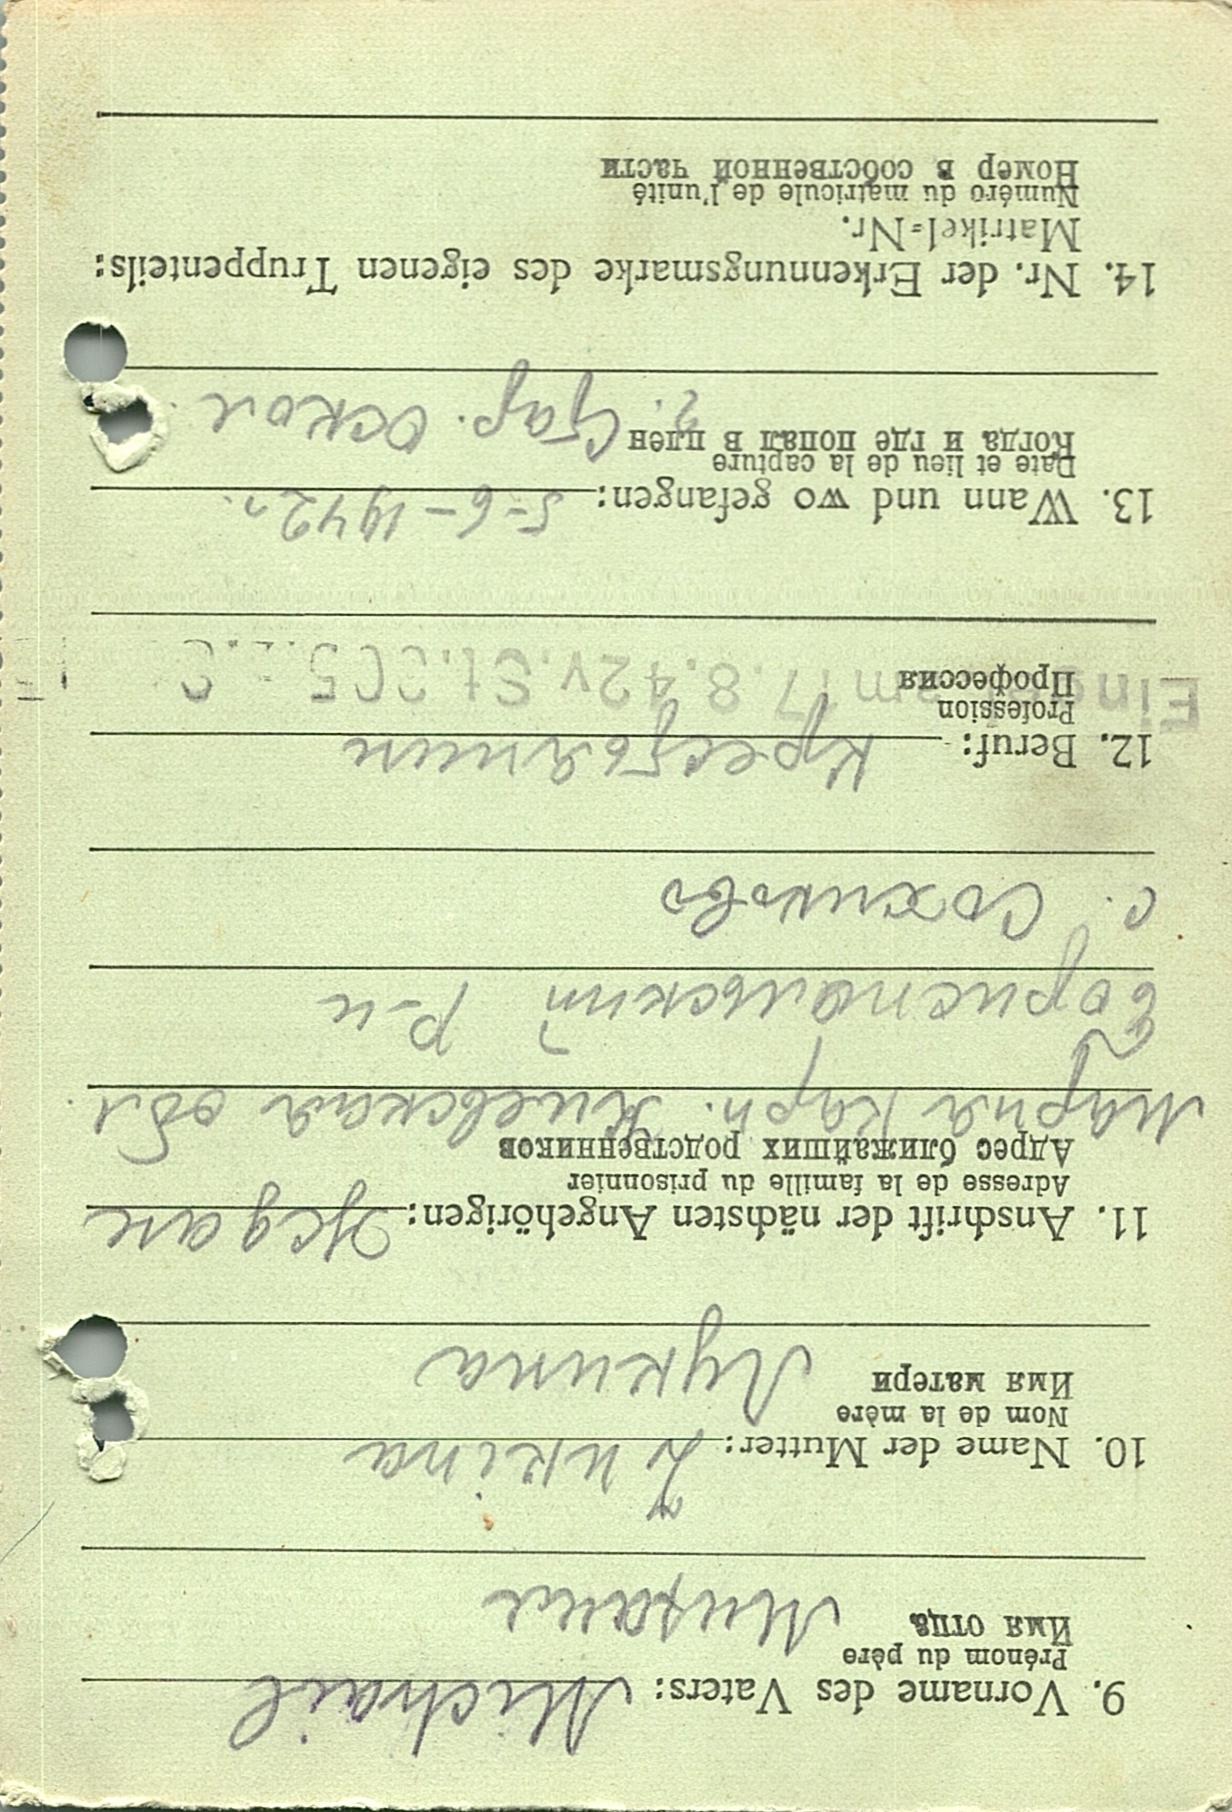 9. Vorname des Vaters: Michail
Prénom du père
Имя отца Михаил
10. Name der Mutter: Lukina
Nom de la mère
Имя матери Лукина
11. Anschrift der nächsten Angehörigen:
Adresse de la famille du prisonnier
Адрес ближайших родственников
Мария Карп. Киевская обл.
Бориспольский р-н
с.
12. Beruf: Крестьянин
Profession
Профессия
am 17.8.42 v. St.
13. Wann und wo gefangen: 5-6-1942 г.
Date et lieu de la capture
Когда и где попал в плен г. Стар. Оскол.
14. Nr. der Erkennungsmarke des eigenen Truppenteils:
Matrikel=Nr.
Numéro du matricule de l'unité
Номер в собственной части